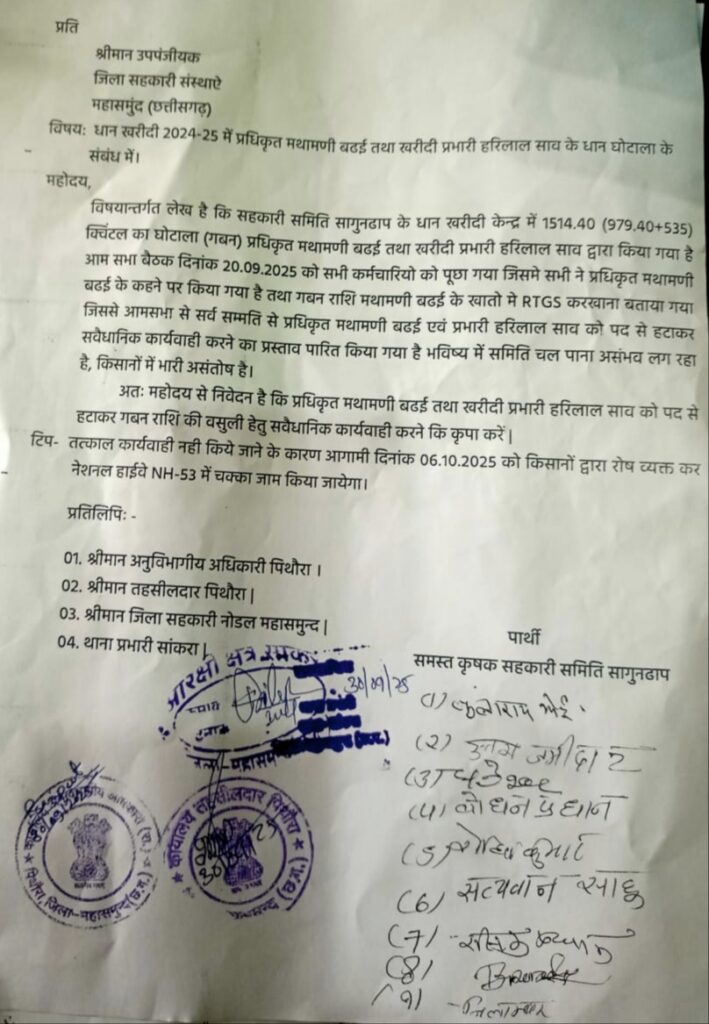 प्रति
श्रीमान उपपंजीयक
जिला सहकारी संस्थाऐ
महासमुंद (छत्तीसगढ़)
विषय: धान खरीदी 2024-25 में प्रधिकृत मथामणी बढई तथा खरीदी प्रभारी हरिलाल साव के धान घोटाला के
संबंध में।
महोदय,
विषयान्तर्गत लेख है कि सहकारी समिति सागुनढाप के धान खरीदी केन्द्र में 1514.40 (979.40+535)
क्विंटल का घोटाला (गबन) प्रधिकृत मथामणी बढई तथा खरीदी प्रभारी हरिलाल साव द्वारा किया गया है
आम सभा बैठक दिनांक 20.09.2025 को सभी कर्मचारियो को पूछा गया जिसमे सभी ने प्रधिकृत मथामणी
बढई के कहने पर किया गया है तथा गबन राशि मथामणी बढई के खातो मे RTGS करखाना बताया गया
जिससे आमसभा से सर्व सम्मति से प्रधिकृत मथामणी बढई एवं प्रभारी हरिलाल साव को पद से हटाकर
सवैधानिक कार्यवाही करने का प्रस्ताव पारित किया गया है भविष्य में समिति चल पाना असंभव लग रहा
है, किसानों में भारी असंतोष है।
अतः महोदय से निवेदन है कि प्रधिकृत मथामणी बढई तथा खरीदी प्रभारी हरिलाल साव को पद से
हटाकर गबन राशि की वसुली हेतु सवैधानिक कार्यवाही करने कि कृपा करें|
टिप- तत्काल कार्यवाही नही किये जाने के कारण आगामी दिनांक 06.10.2025 को किसानों द्वारा रोष व्यक्त कर
नेशनल हाईवे NH-53 में चक्का जाम किया जायेगा।
प्रतिलिपिः -
01. श्रीमान अनुविभागीय अधिकारी पिथौरा ।
02. श्रीमान तहसीलदार पिथौरा|
03. श्रीमान जिला सहकारी नोडल महासमुन्द|
04. थाना प्रभारी सांकरा|
पार्थी
समस्त कृषक सहकारी समिति सागुनढाप
आरक्षी क्षेत्र
30/09/25
कार्यालय तहसीलदार पिथौरा
पिथौरा, जिला-महासमुन्द (छ.ग.)
(1)
(2) उत्तम जमीदार
(3)
(4) बोधन प्रधान
(5) कुमार
(6) सत्यवान साहू
(7)
(8)
(9)